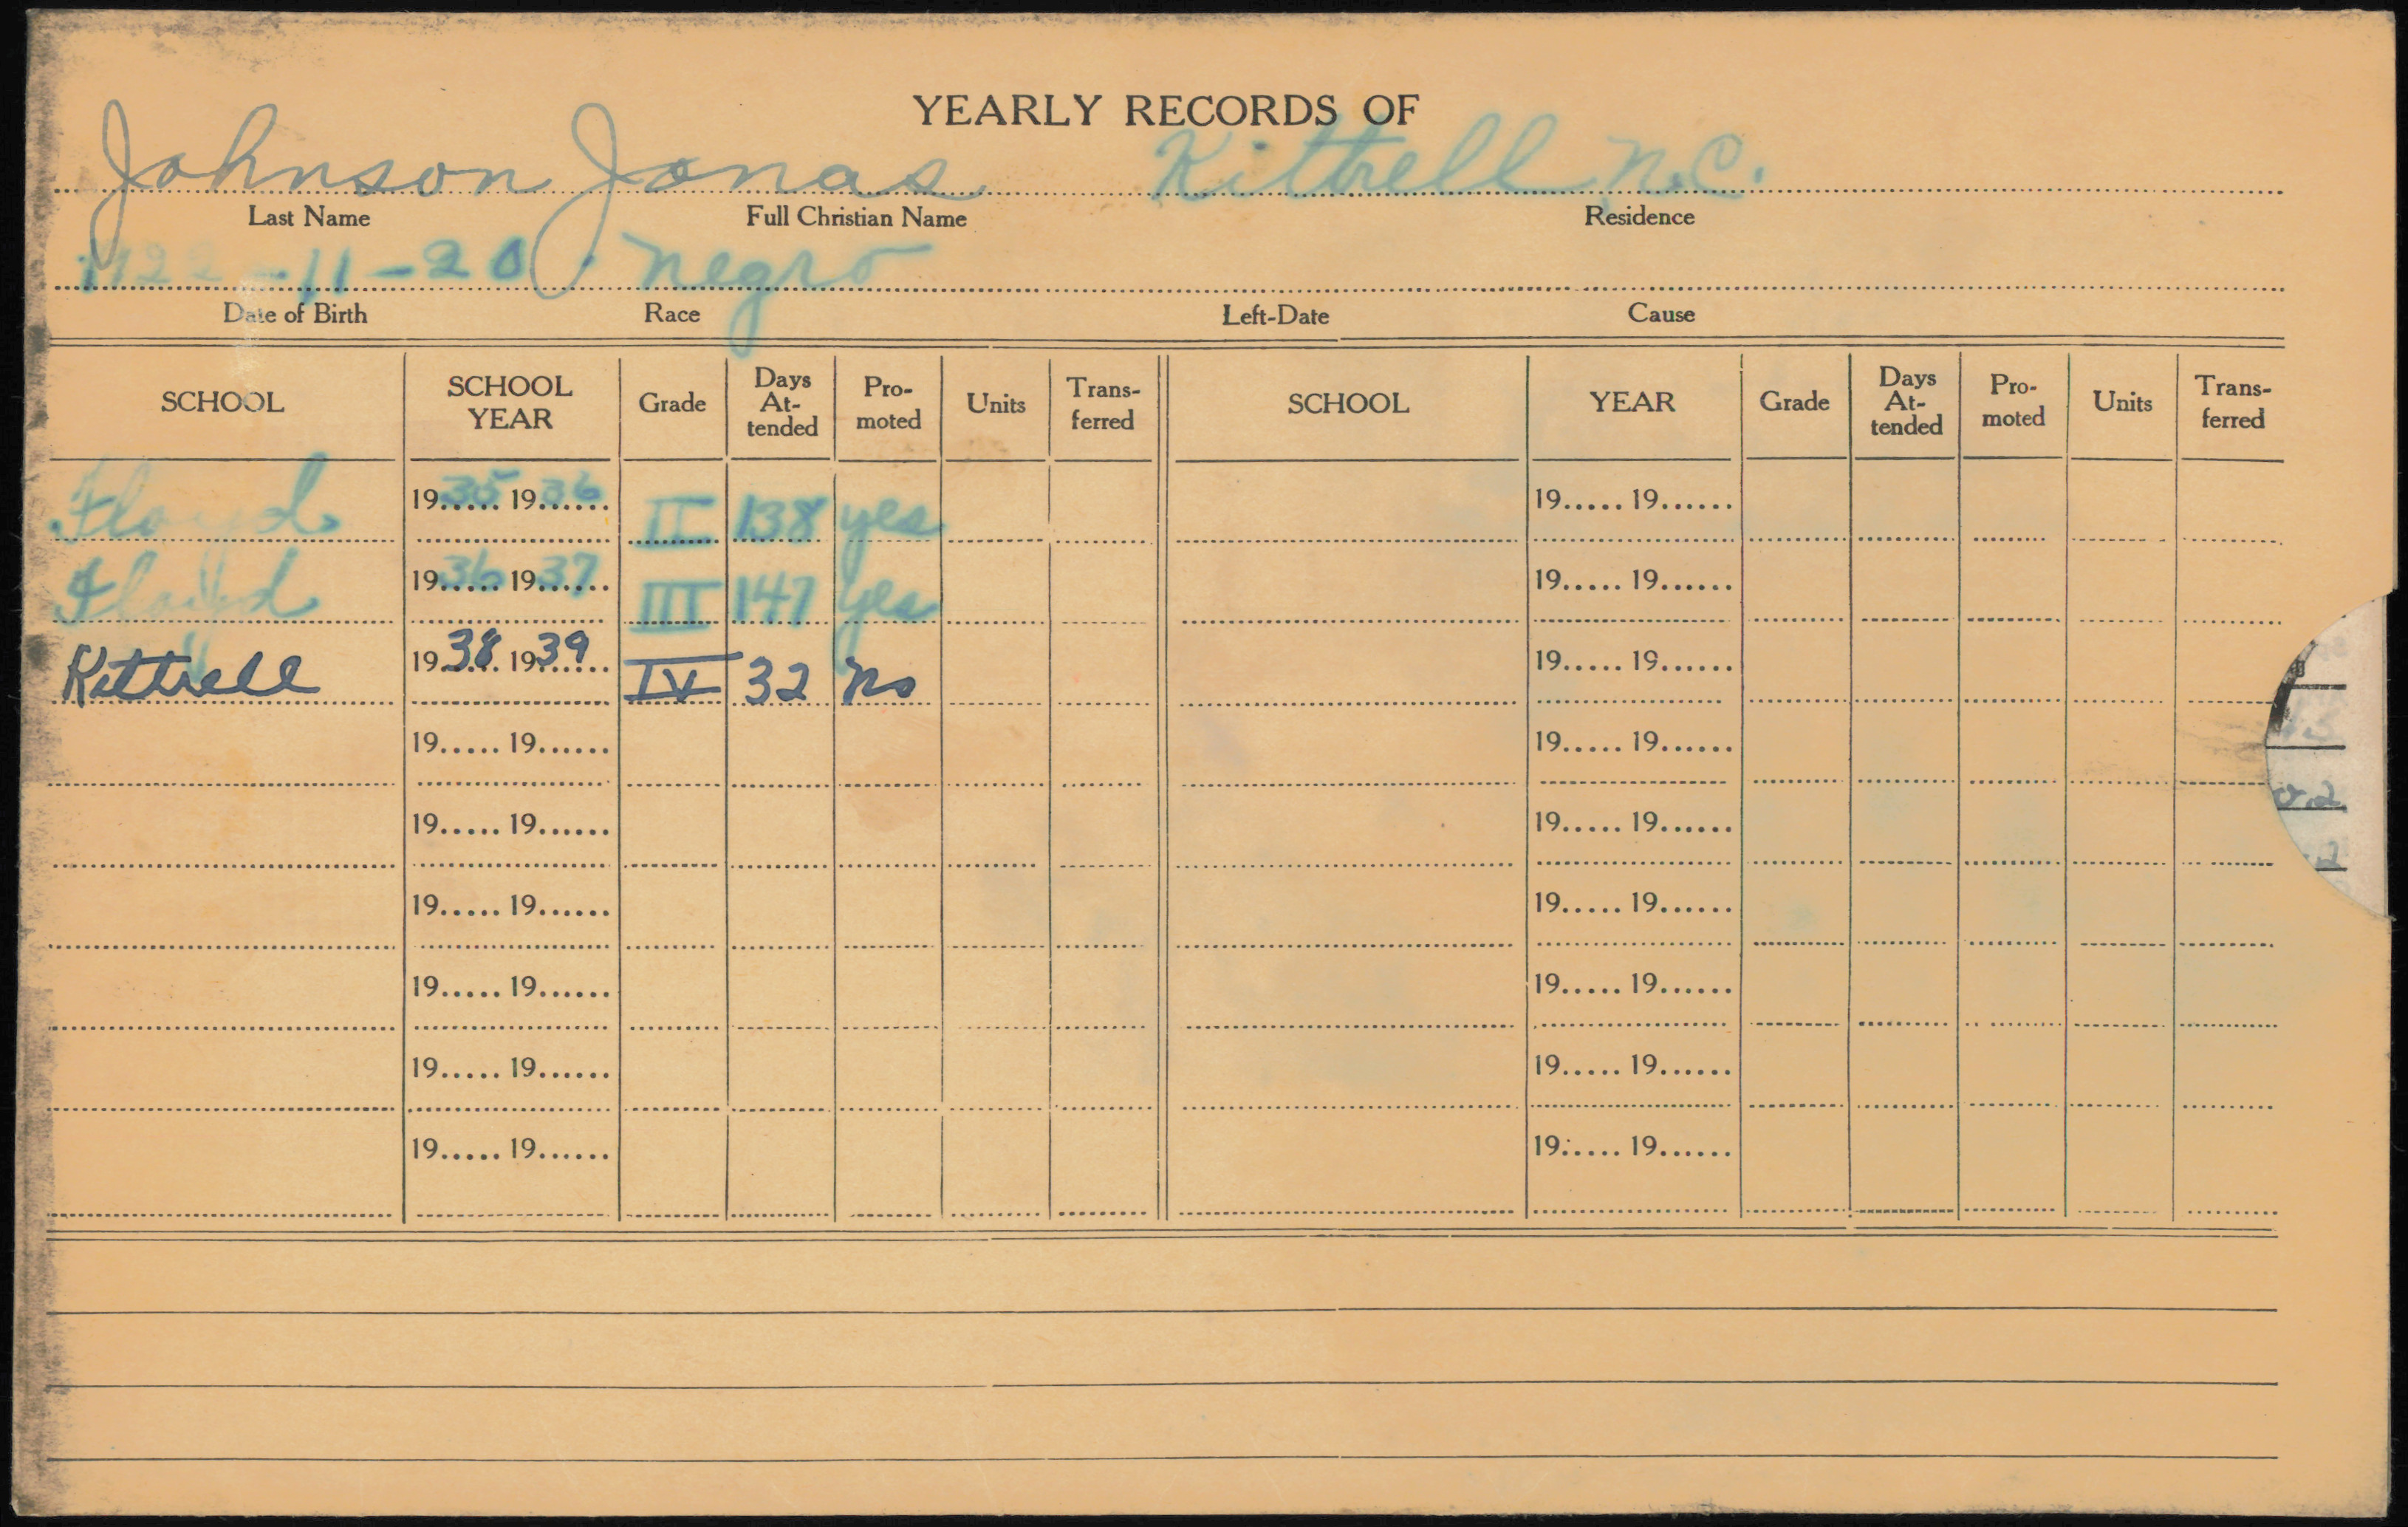 YEARLY RECORDS OF
Johnson Jonas Kittrell N.C.
Last Name Full Christian Name Residence
1922-11-20 Negro
Date of Birth Race Left-Date Cause
SCHOOL SCHOOL YEAR Grade Days At-tended Pro-moted Units Trans-ferred SCHOOL YEAR Grade Days At-tended Pro-moted Units Trans-ferred
Floyd 1935 1936 II 138 yes 19..... 19......
Floyd 1936 1937 III 147 yes 19..... 19......
Kittrell 1938 1939 IV 32 no 19..... 19......
19..... 19...... 19..... 19......
19..... 19...... 19..... 19......
19..... 19...... 19..... 19......
19..... 19...... 19..... 19......
19..... 19...... 19..... 19......
19..... 19...... 19..... 19......